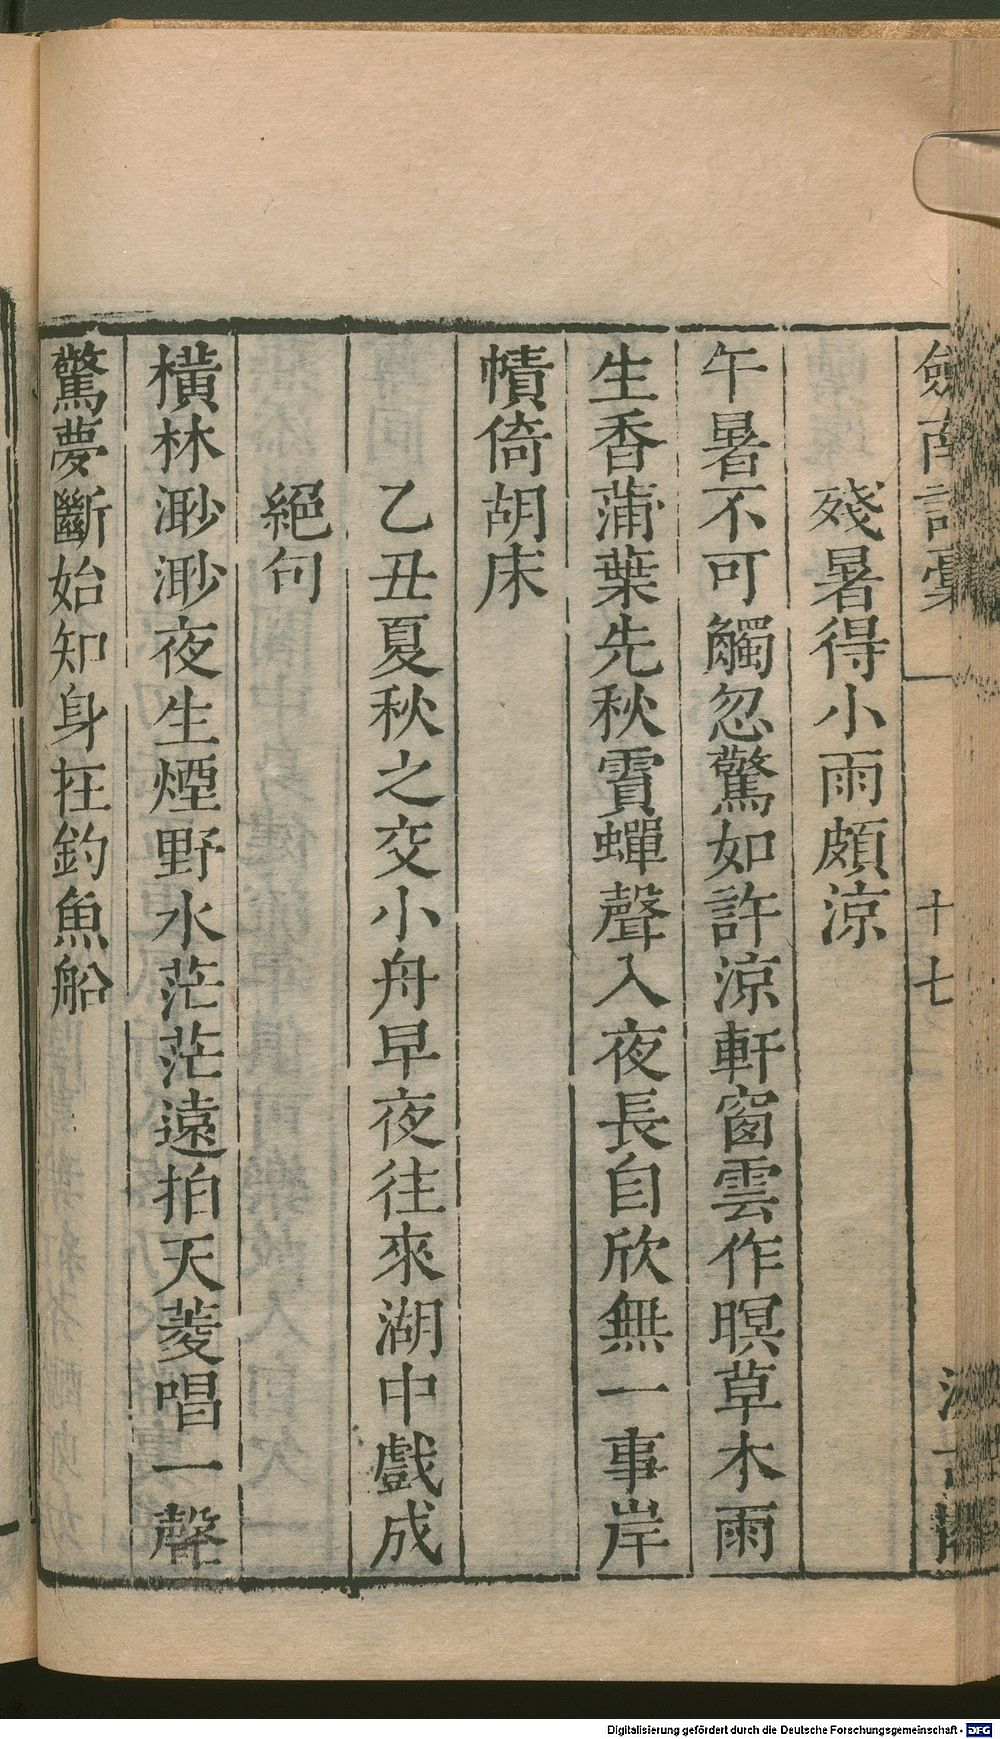 劍南詩彙
十七
殘暑得小雨頗涼
午暑不可觸忽驚如許涼軒窗雲作暝草木雨
生香蒲葉先秋賈蟬聲入夜長自欣無一事岸
幘倚胡床
乙丑夏秋之交小舟早夜往來湖中戲成
絕句
橫林渺渺夜生煙野水茫茫遠拍天菱唱一聲
驚夢斷始知身在釣魚船
Digitalisierung gefördert durch die Deutsche Forschungsgemeinschaft - DFG